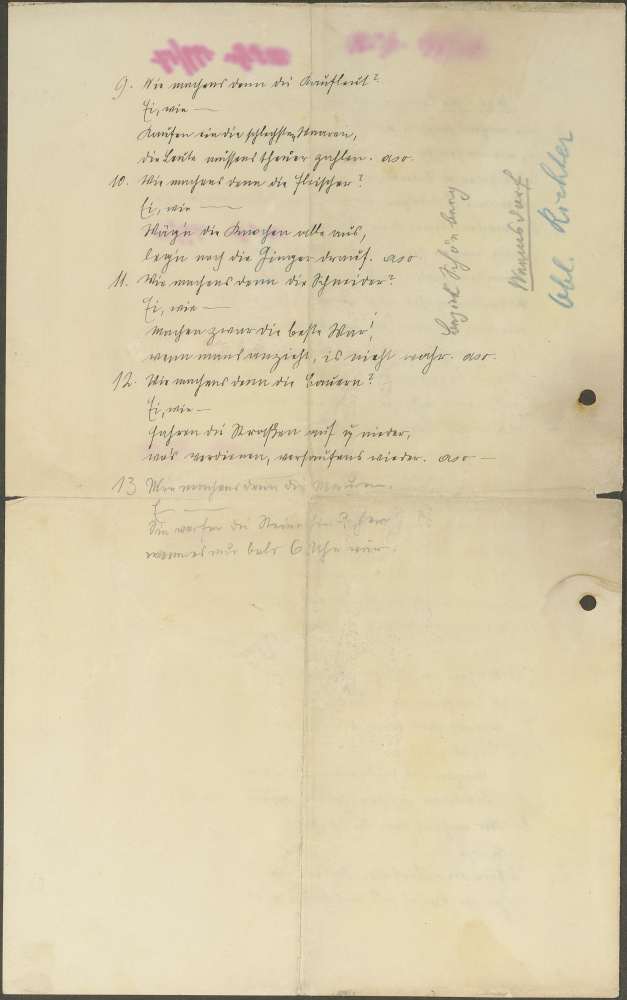 9. Wie machens denn die Kaufleut?
Ei, wie —
Kaufen ein die schlechsten Waaren,
die Leute müssens theuer zahlen. aso.
10. Wie machens denn die Fleischer?
Ei, wie —
Wäg'n die Knochen alle aus,
leg'n noch die Finger drauf. aso
11. Wie machens denn die Schneider?
Ei, wie —
Machen zwar die beste War',
wenn mans anzieht, is nicht wahr. aso.
12. Wie machens denn die Bauern?
Ei, wie —
fahren die Strassen auf u nieder,
was verdienen, versaufens wieder. aso —
13 Wie machens denn die Maurer.
E —
Sie werfen die Steine hin u her
wenn es nur bald 6 Uhr wär.
Bezirk Schönberg
Wermsdorf
Obl. Richter